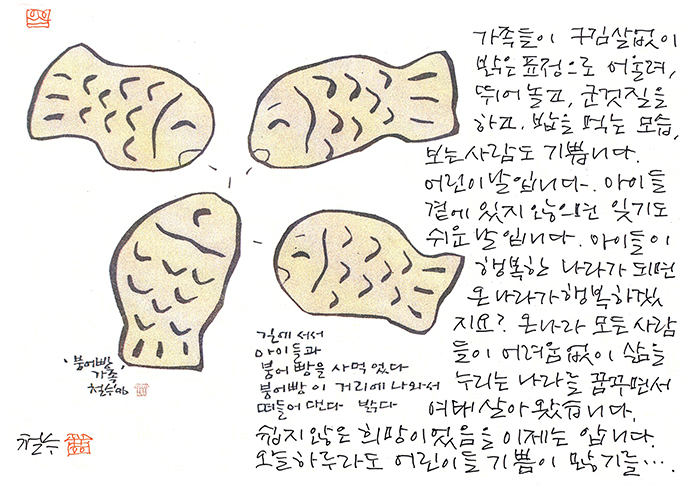 가족들이 구김살없이
밝은 표정으로 어울려,
뛰어놀고, 군것질을
하고, 밥을 먹는 모습,
보는 사람도 기쁩니다.
어린이날입니다. 아이들
곁에 있지 않으면 잊기도
쉬운 날입니다. 아이들이
행복한 나라가 되면
온나라가 행복하겠
지요? 온나라 모든 사람
들이 어려움없이 삶을
누리는 나라를 꿈꾸면서
여태 살아왔습니다.
쉽지 않은 희망이었음을 이제는 압니다.
오늘하루라도 어린이들 기쁨이 많기를….
길에 서서
아이들과
붕어빵을 사먹었다
붕어빵이 거리에 나와서
떠들어 댄다 밝다
'붕어빵
가족'
철수
철수